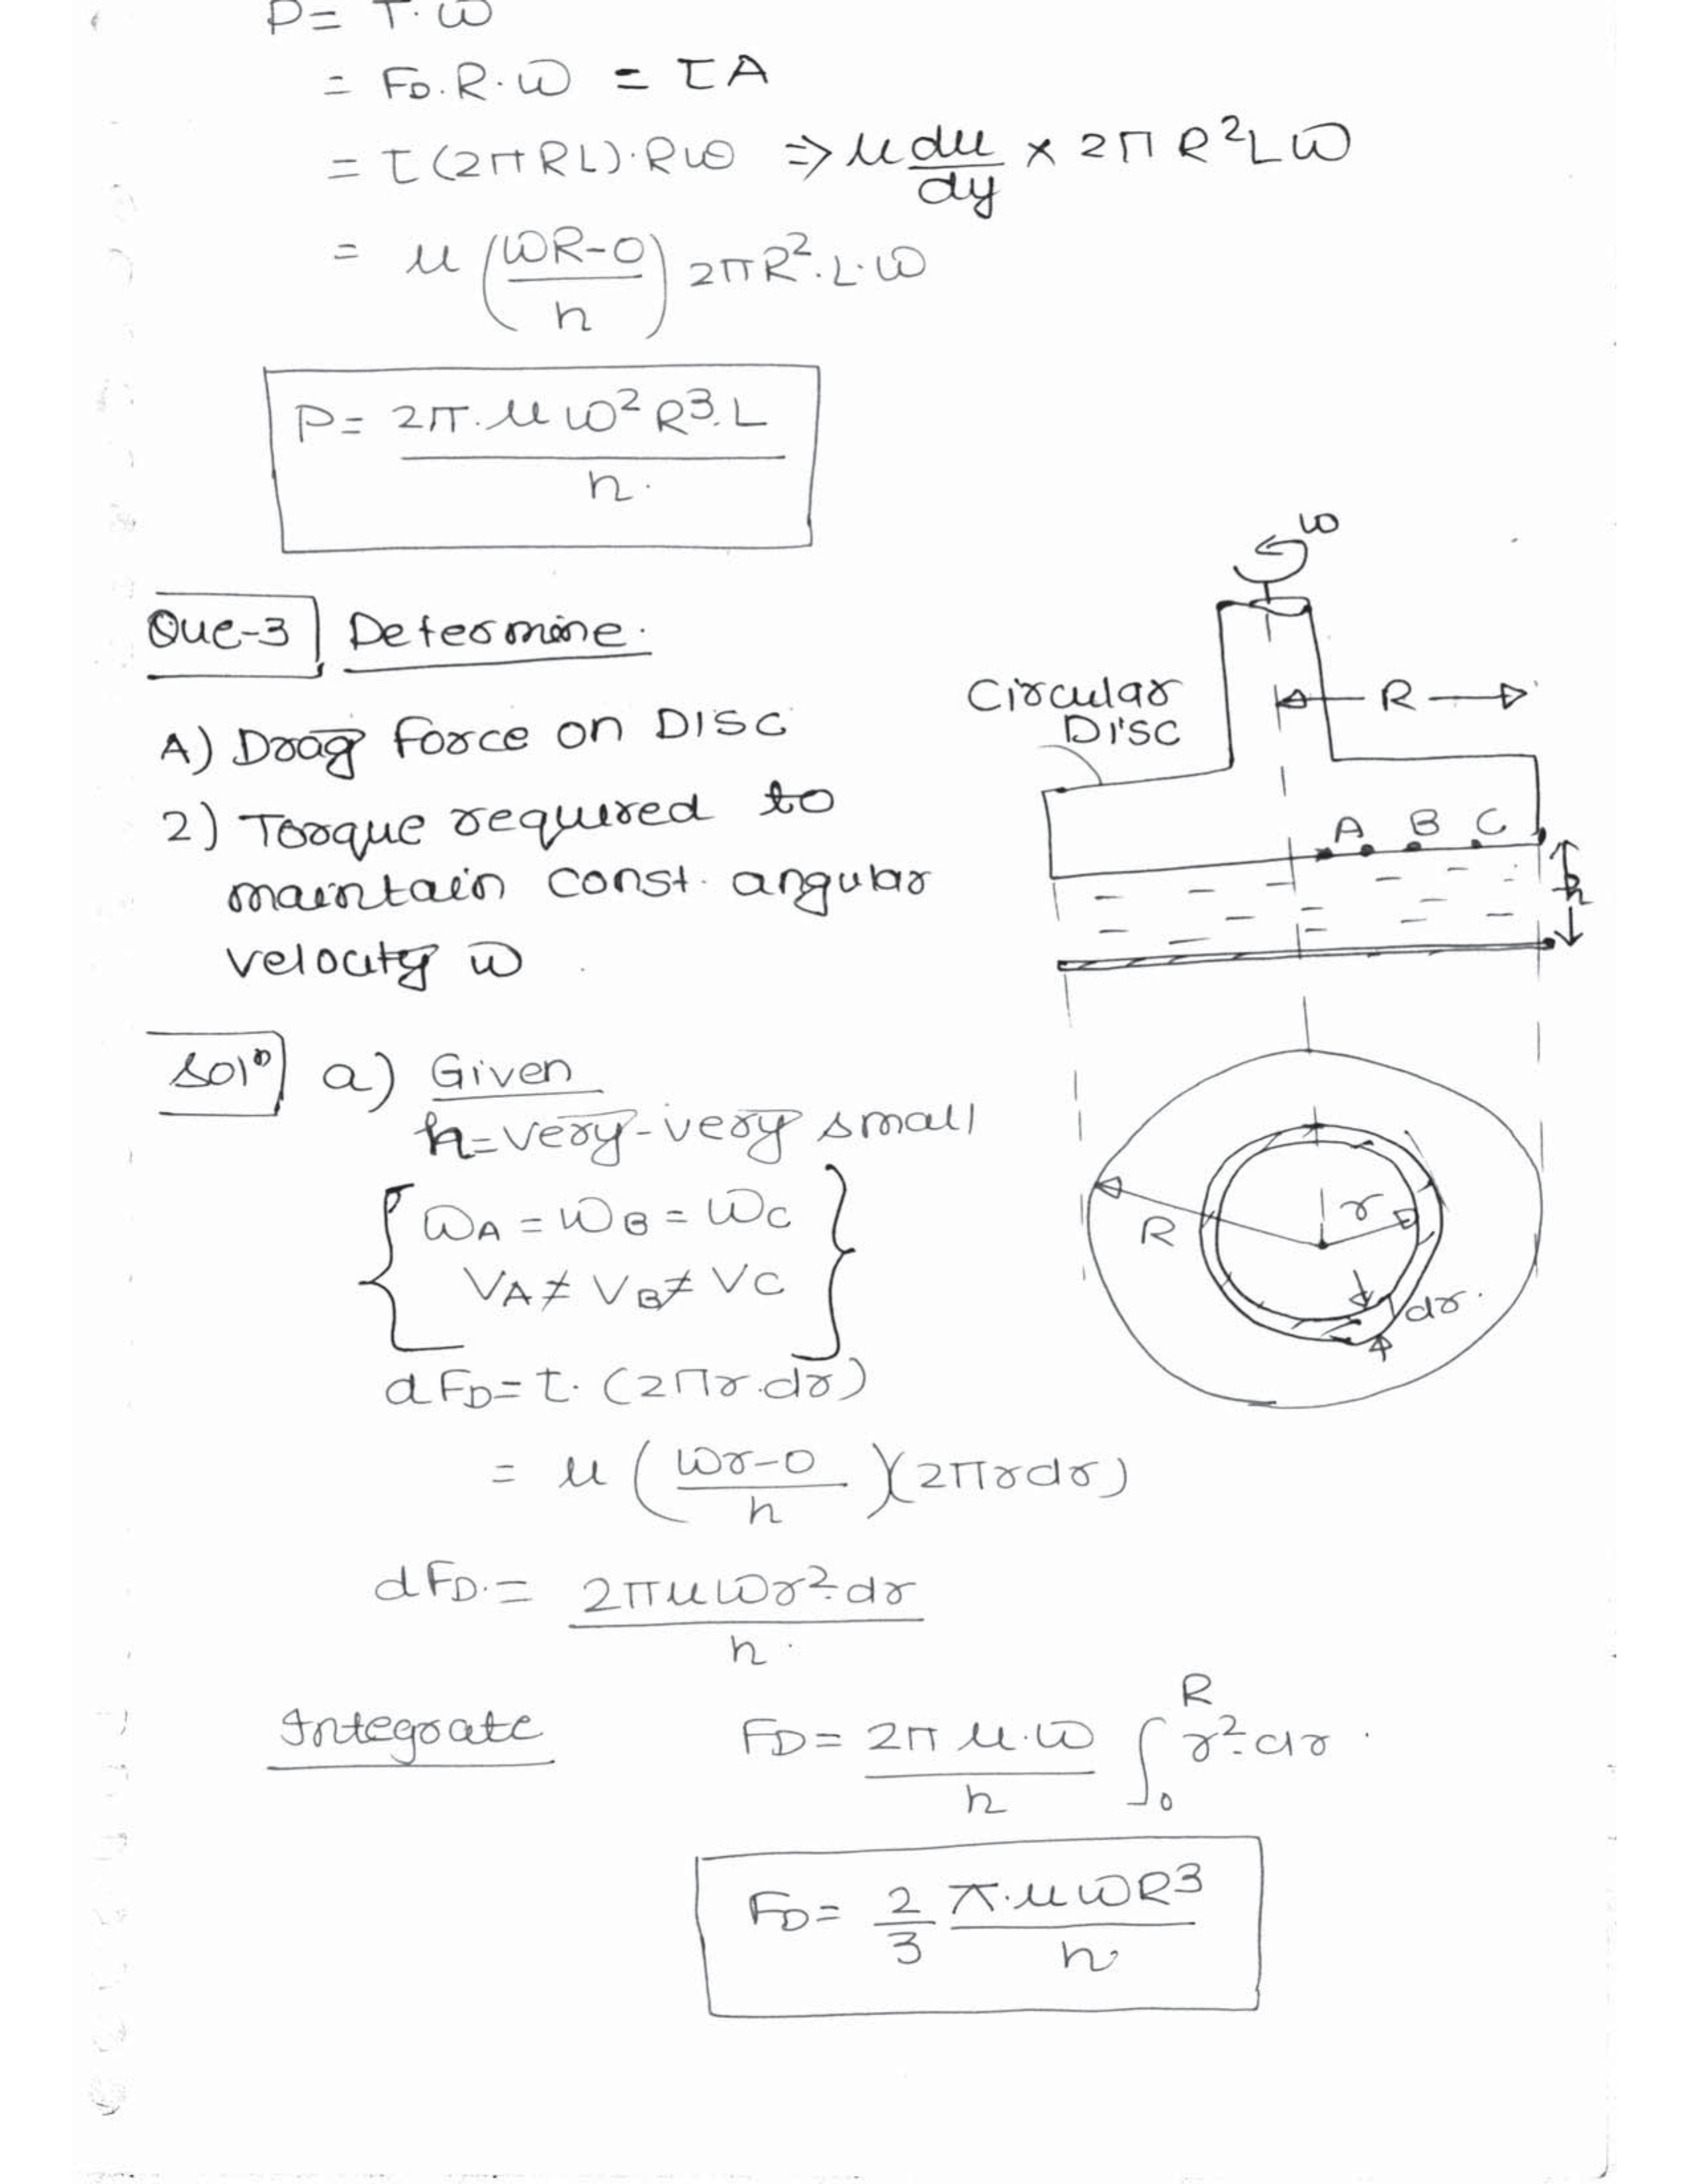 P = T·ω
= F_D·R·ω = τA
= τ(2πRL)·Rω ⇒ μ du/dy × 2πR²Lω
= μ ((ωR-0)/h) 2πR²·L·ω
P = 2π·μω²R³·L / h·
Que-3 Determine·
A) Drag force on DISC
2) Torque required to
maintain const. angular
velocity ω
ω
Circular
DISC
R
A B C
h
Sol⁰ a) Given
h = very-very small
{ ω_A = ω_B = ω_C
V_A ≠ V_B ≠ V_C }
R
r
dr·
dF_D = τ·(2πr·dr)
= μ ((ωr-0)/h)(2πrdr)
dF_D· = 2πμωr²·dr / h·
Integrate F_D = 2πμ·ω / h ∫₀ᴿ r²·dr ·
F_D = 2/3 π·μωR³ / h